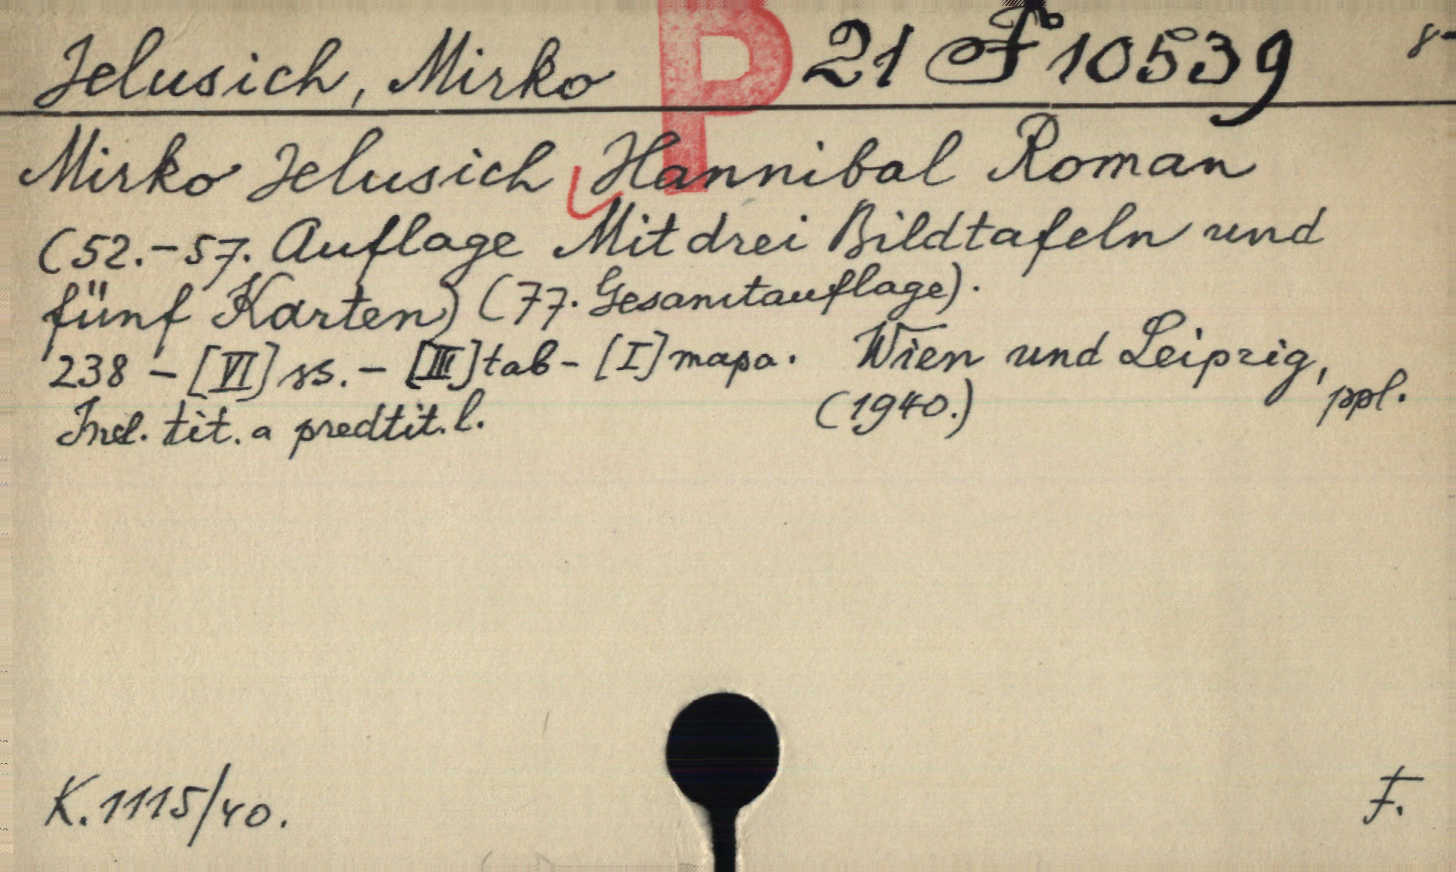 Jelusich, Mirko P 21 F 10539 8-
Mirko Jelusich Hannibal Roman
(52.-57. Auflage Mit drei Bildtafeln und
fünf Karten) (77. Gesamtauflage).
238 - [VI] ss. - [III] tab - [I] mapa. Wien und Leipzig,
Incl. tit. a predtit. l. (1940.) ppl.
K. 1115/40. F.